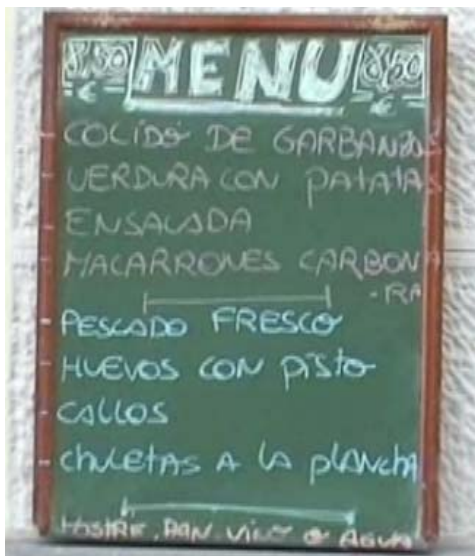 8,50 € MENU 8,50 €
- COCIDO DE GARBANZOS
- VERDURA CON PATATAS
- ENSALADA
- MACARRONES CARBONA
-RA
- PESCADO FRESCO
- HUEVOS CON PISTO
- CALLOS
- CHULETAS A LA PLANCHA
POSTRE, PAN, VINO O AGUA